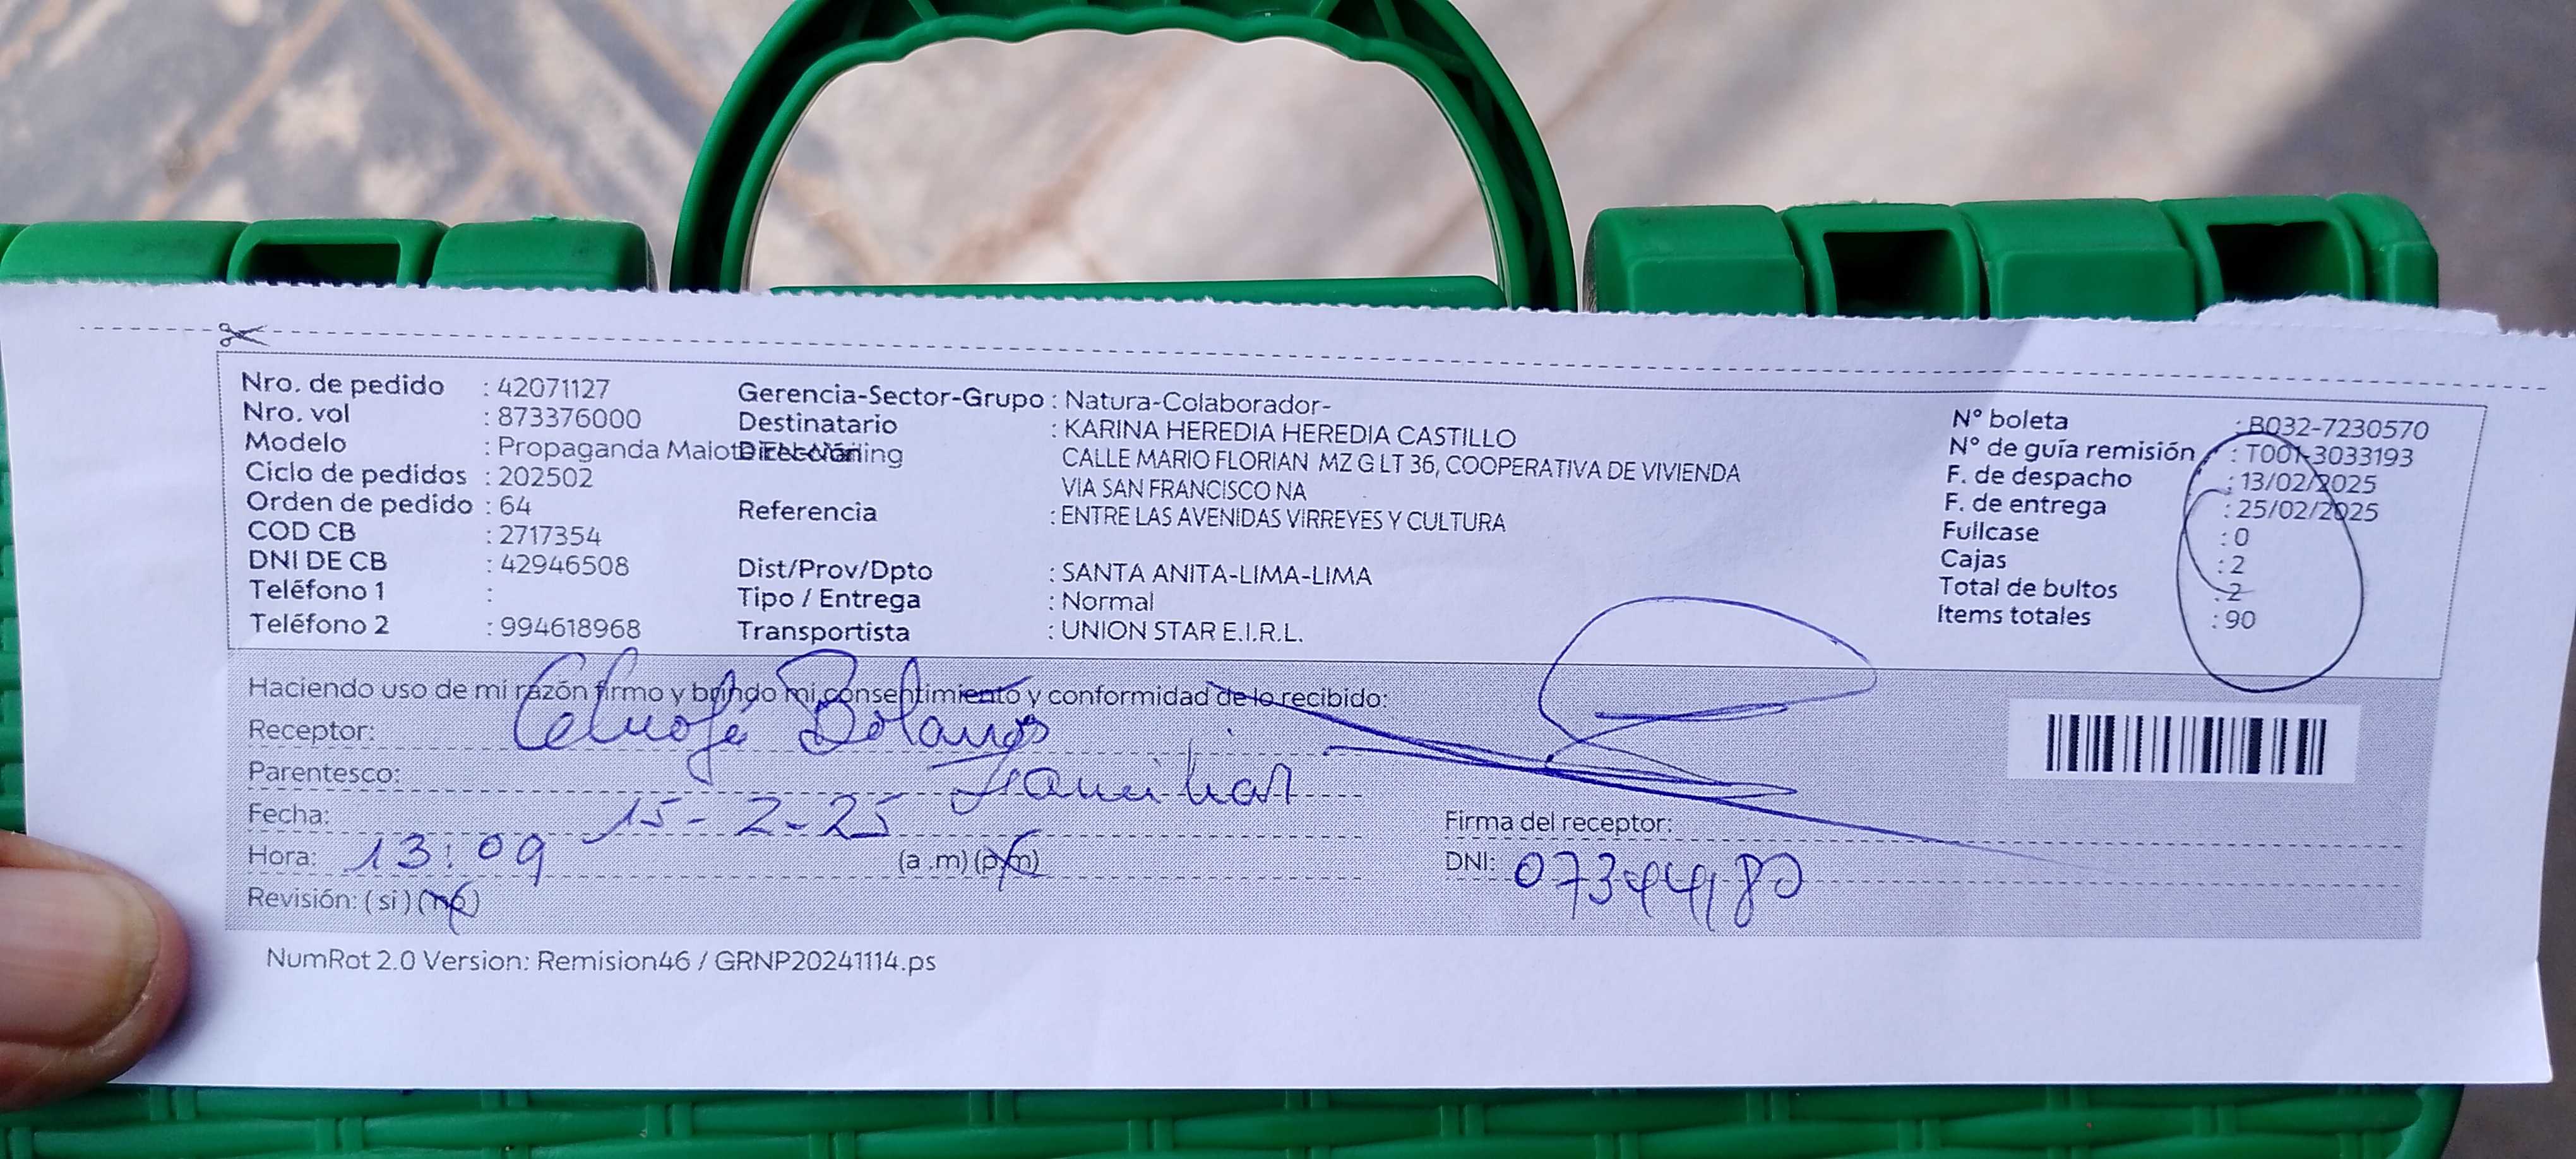 Nro. de pedido : 42071127
Nro. vol : 873376000
Modelo : Propaganda
Ciclo de pedidos : 202502
Orden de pedido : 64
COD CB : 2717354
DNI DE CB : 42946508
Teléfono 1 :
Teléfono 2 : 994618968
Gerencia-Sector-Grupo : Natura-Colaborador-
Destinatario : KARINA HEREDIA HEREDIA CASTILLO
Dirección CALLE MARIO FLORIAN MZ G LT 36, COOPERATIVA DE VIVIENDA
VIA SAN FRANCISCO NA
Referencia : ENTRE LAS AVENIDAS VIRREYES Y CULTURA
Dist/Prov/Dpto : SANTA ANITA-LIMA-LIMA
Tipo / Entrega : Normal
Transportista : UNION STAR E.I.R.L.
N° boleta : B032-7230570
N° de guía remisión : T001-3033193
F. de despacho : 13/02/2025
F. de entrega : 25/02/2025
Fullcase : 0
Cajas : 2
Total de bultos : 2
Items totales : 90
Haciendo uso de mi razón firmo y brindo mi consentimiento y conformidad de lo recibido:
Receptor: Bolaños
Parentesco: Familiar
Fecha: 15-2-25
Hora: 13:09 (a .m) (p.m)
Revisión: ( si ) (no)
Firma del receptor:
DNI: 07344180
NumRot 2.0 Version: Remision46 / GRNP20241114.ps